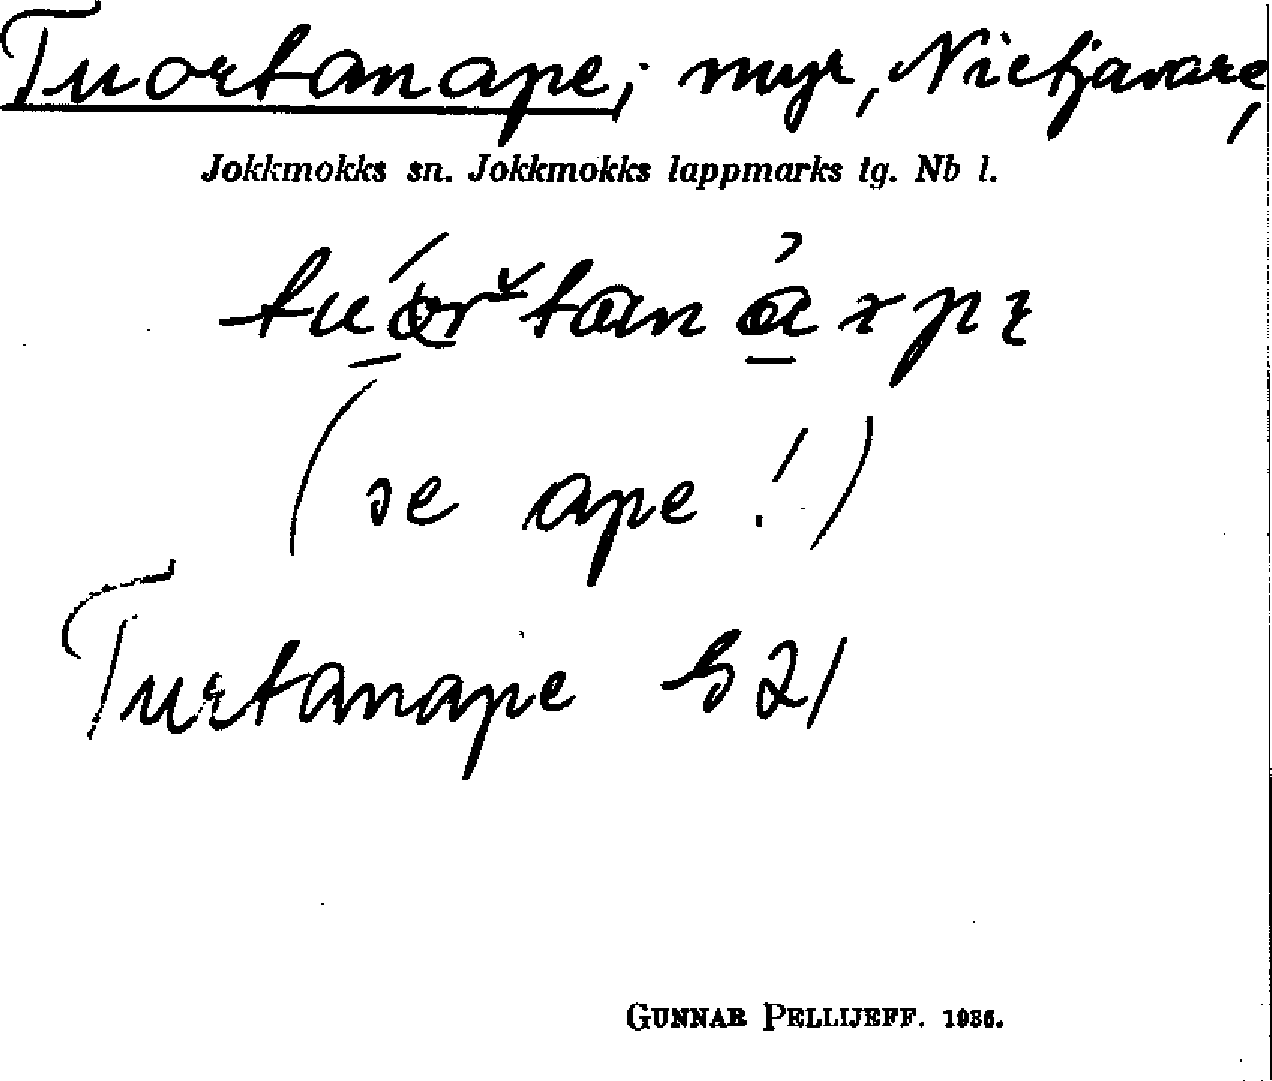 Tuortanape; myr, Nietjavare,
Jokkmokks sn. Jokkmokks lappmarks tg. Nb l.
(se ape!)
Turtanape S 21
GUNNAR PELLIJEFF. 1936.